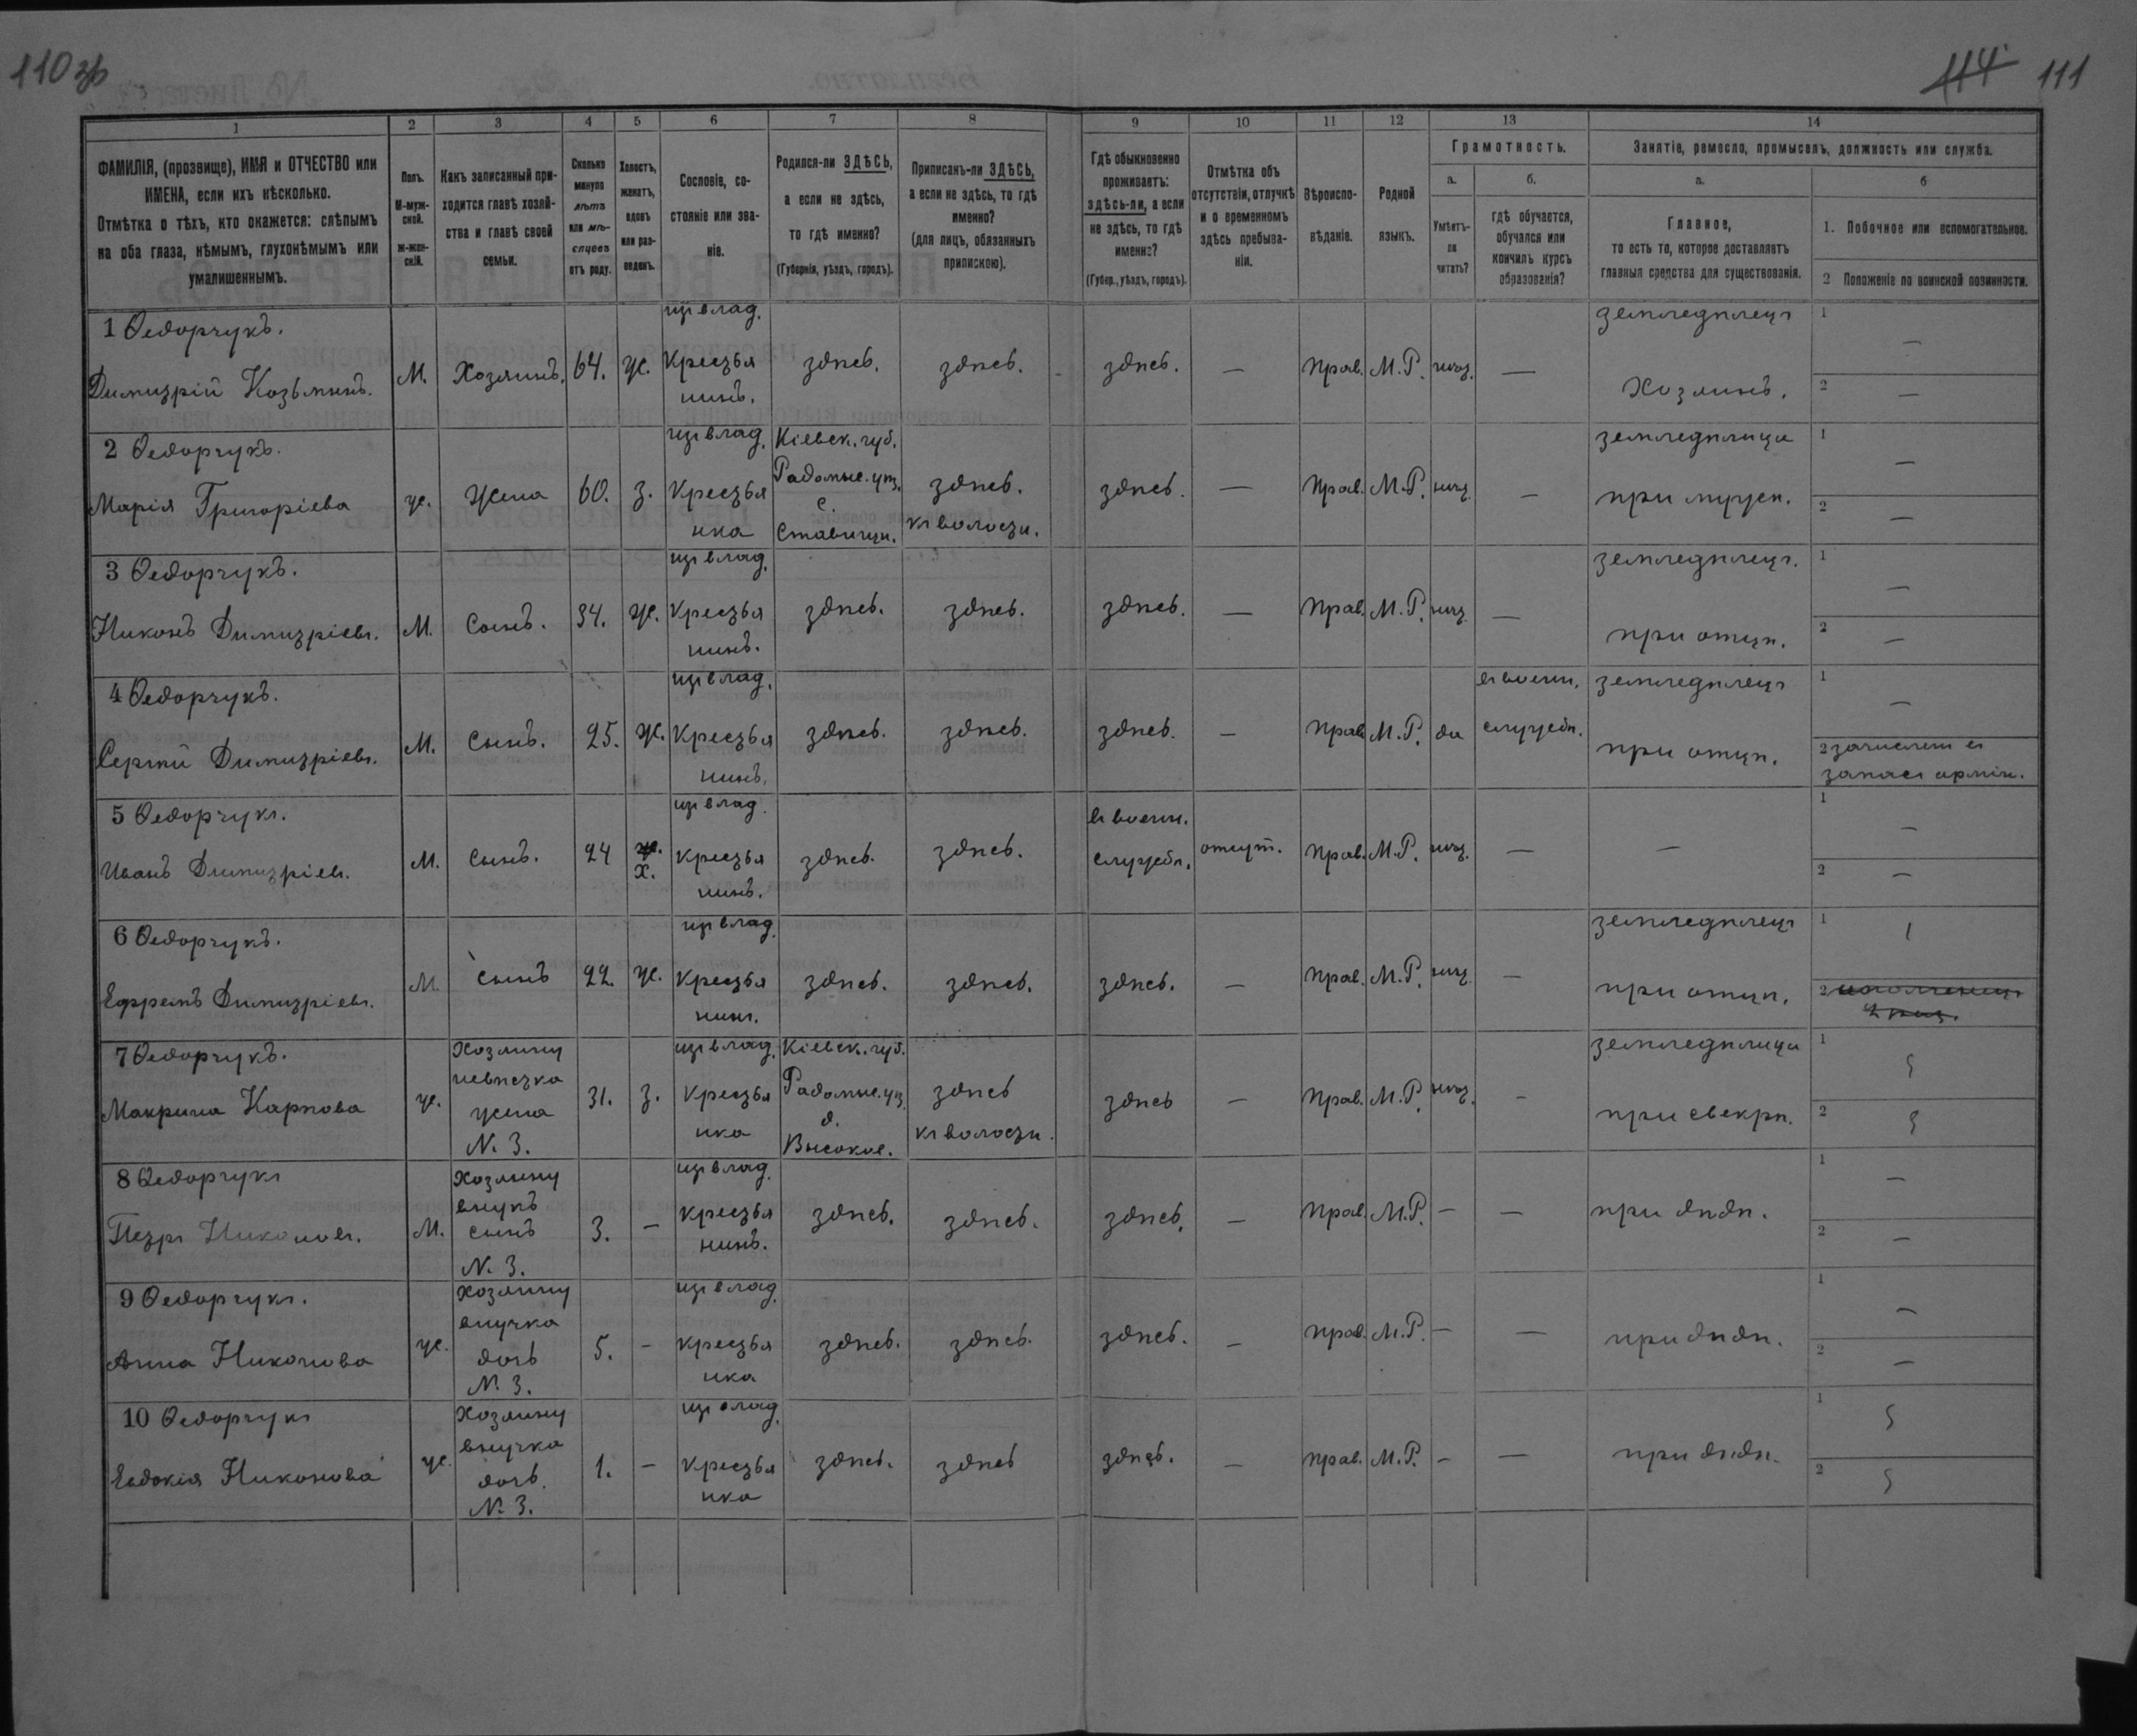 110 зв
114 111
1 2 3 4 5 6 7 8 9 10 11 12 13 14
ФАМИЛІЯ, (прозвище), ИМЯ и ОТЧЕСТВО или ИМЕНА, если ихъ нѣсколько.
Отмѣтка о тѣхъ, кто окажется: слѣпымъ на оба глаза, нѣмымъ, глухонѣмымъ или умалишеннымъ.
Полъ. М-мужской. ж-женскій.
Какъ записанный приходится главѣ хозяйства и главѣ своей семьи.
Сколько минуло лѣтъ или мѣсяцевъ отъ роду.
Холостъ, женатъ, вдовъ или разведенъ.
Сословіе, состояніе или званіе.
Родился-ли ЗДѢСЬ, а если не здѣсь, то гдѣ именно? (Губернія, уѣздъ, городъ).
Приписанъ-ли ЗДѢСЬ, а если не здѣсь, то гдѣ именно? (для лицъ, обязанныхъ припискою).
Гдѣ обыкновенно проживаетъ: здѣсь-ли, а если не здѣсь, то гдѣ именно? (Губер., уѣздъ, городъ).
Отмѣтка объ отсутствіи, отлучкѣ и о временномъ здѣсь пребываніи.
Вѣроисповѣданіе.
Родной языкъ.
Грамотность.
а. Умѣетъ-ли читать?
б. гдѣ обучается, обучался или кончилъ курсъ образованія?
Занятіе, ремесло, промыселъ, должность или служба.
а. Главное, то есть то, которое доставляетъ главныя средства для существованія.
б
1. Побочное или вспомогательное.
2 Положеніе по воинской повинности.
1 Ѳедорчукъ. Димитрій Козьминъ. М. Хозяинъ. 64. ж. Крестьянинъ. здѣсь. здѣсь. здѣсь. — Прав. М.Р. нѣт. — земледѣлецъ Хозяинъ. 1 — 2 —
2 Ѳедорчукъ. Марія Григоріева ж. Жена 60. з. Крестьянка Кіевск. губ. Радомыс. уѣз. с. Ставищи. здѣсь. къ волости. здѣсь. — Прав. М.Р. нѣт. — земледѣлица при мужѣ. 1 — 2 —
3 Ѳедорчукъ. Никонъ Димитріевъ. М. Сынъ. 34. ж. Крестьянинъ. здѣсь. здѣсь. здѣсь. — Прав. М.Р. нѣт. — земледѣлецъ. при отцѣ. 1 — 2 —
4 Ѳедорчукъ. Сергѣй Димитріевъ. М. Сынъ. 25. ж. Крестьянинъ. здѣсь. здѣсь. здѣсь. — Прав. М.Р. да въ воен. службѣ. земледѣлецъ при отцѣ. 1 — 2 зачисленъ въ запасъ арміи.
5 Ѳедорчукъ. Иванъ Димитріевъ. М. Сынъ. 24 ж. Х. Крестьянинъ. здѣсь. здѣсь. въ воен. службѣ. отсут. Прав. М.Р. нѣт. — — 1 — 2 —
6 Ѳедорчукъ. Ефремъ Димитріевъ. М. сынъ 22. ж. Крестьянинъ. здѣсь. здѣсь. здѣсь. — Прав. М.Р. нѣт. — земледѣлецъ при отцѣ. 1 2 ополченецъ
7 Ѳедорчукъ. Макрина Карпова ж. Хозяину невѣстка жена № 3. 31. з. Крестьянка Кіевск. губ. Радомыс. уѣз. д. Высокое. здѣсь къ волости. здѣсь — Прав. М.Р. нѣт. — земледѣлица при свекрѣ. 1 2
8 Ѳедорчукъ Петръ Никоновъ. М. Хозяину внукъ сынъ № 3. 3. — Крестьянинъ. здѣсь. здѣсь. здѣсь. — Прав. М.Р. — — при дѣдѣ. 1 — 2 —
9 Ѳедорчукъ. Анна Никонова ж. Хозяину внучка дочь № 3. 5. — Крестьянка здѣсь. здѣсь. здѣсь. — прав. М.Р. — — при дѣдѣ. 1 — 2 —
10 Ѳедорчукъ Евдокія Никонова ж. Хозяину внучка дочь. № 3. 1. — Крестьянка здѣсь. здѣсь здѣсь. — прав. М.Р. — — при дѣдѣ. 1 2